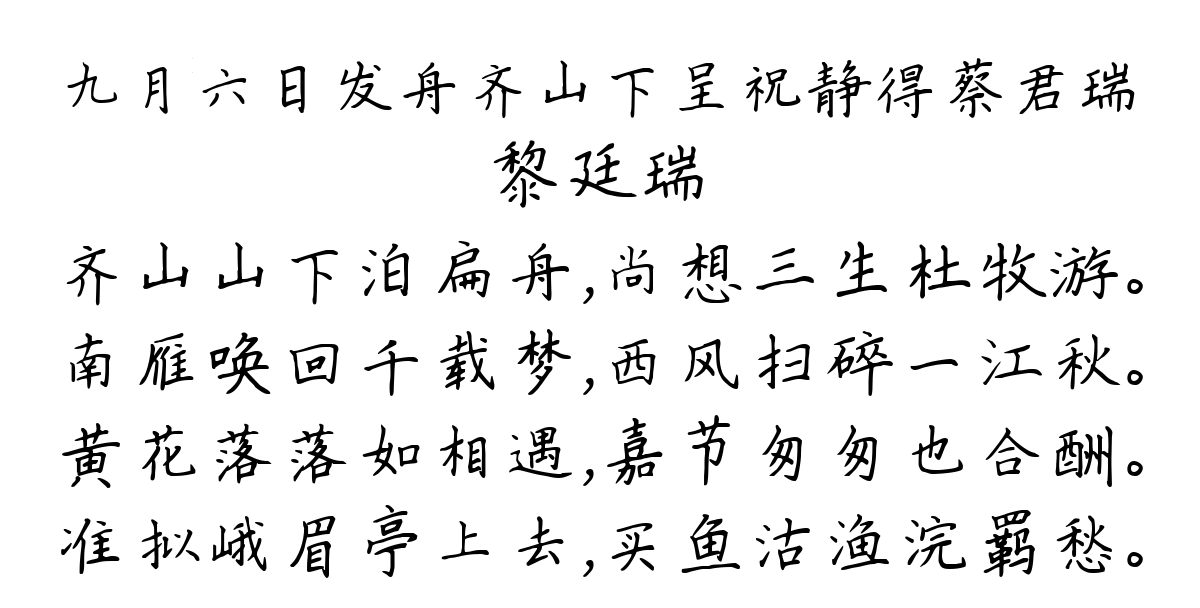 九月六日发舟齐山下呈祝静得蔡君瑞
黎廷瑞
齐山山下泊扁舟,尚想三生杜牧游。
南雁唤回千载梦,西风扫碎一江秋。
黄花落落如相遇,嘉节匆匆也合酬。
准拟峨眉亭上去,买鱼沽渔浣羁愁。